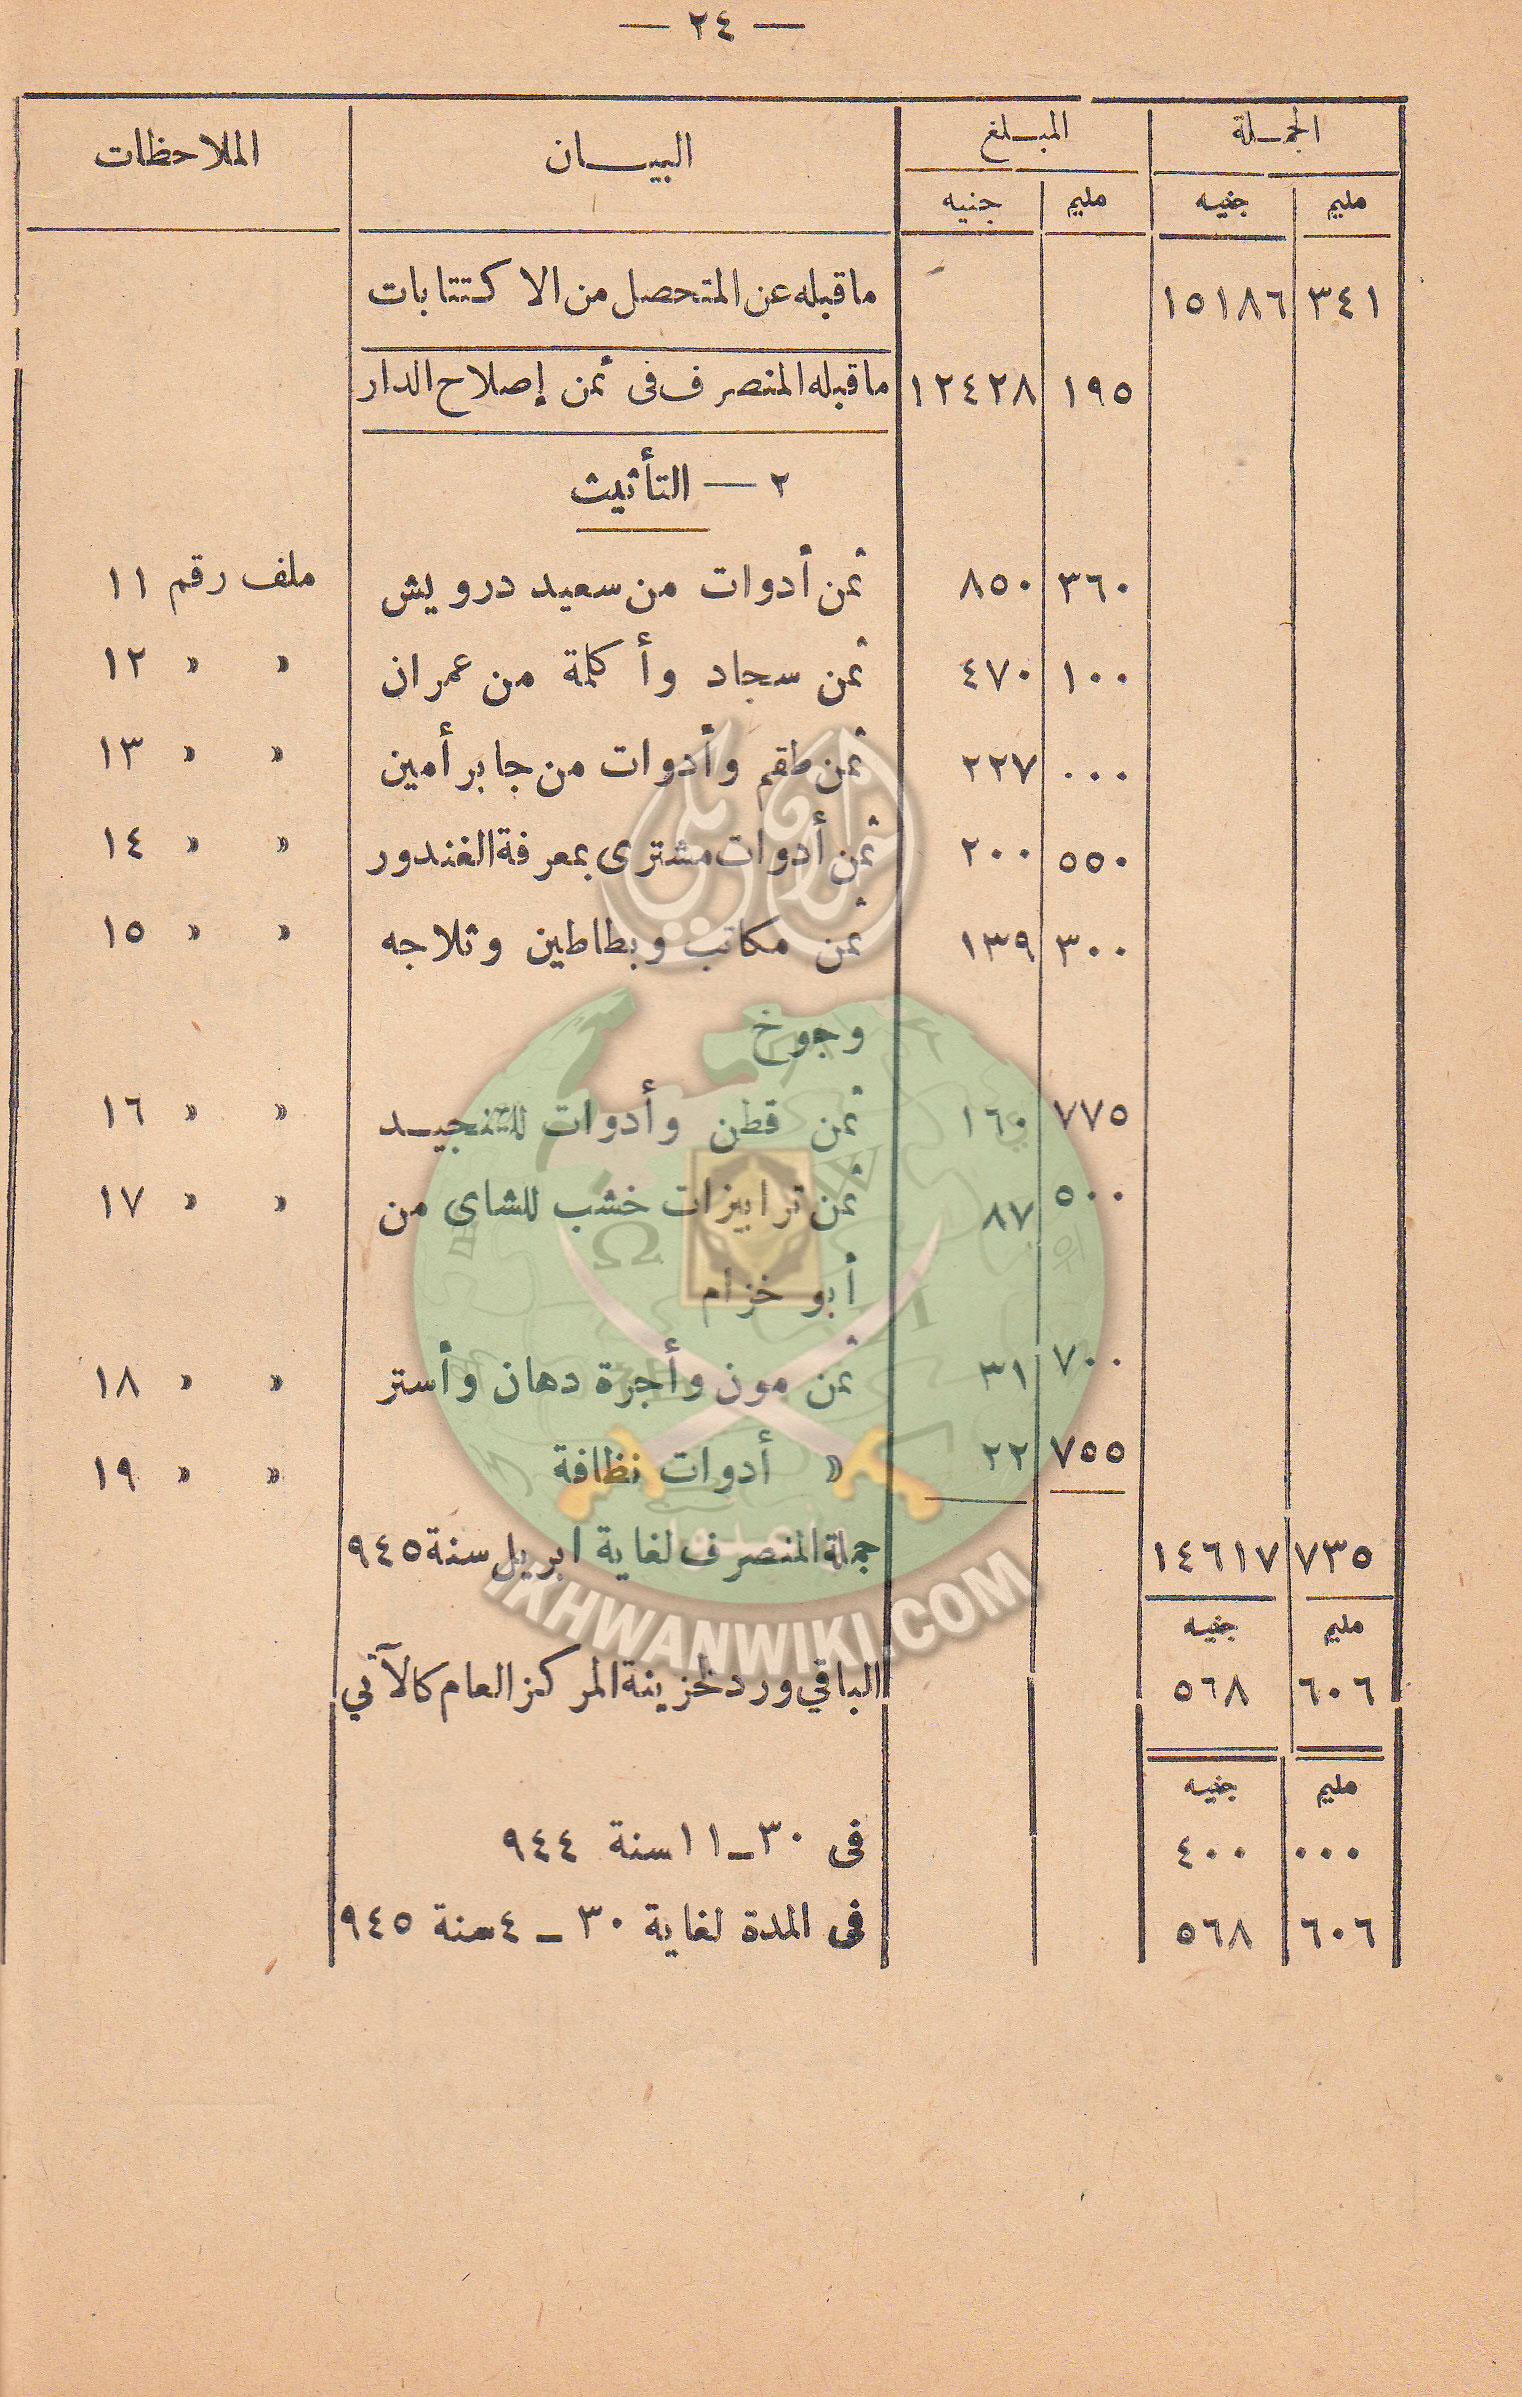 — ٢٤ —
الجمـلة المبـلغ البيـــان الملاحظات
مليم جنيه مليم جنيه
٣٤١ ١٥١٨٦ ماقبله عن المتحصل من الاكتتابات
١٩٥ ١٢٤٢٨ ماقبله المنصرف فى ثمن إصلاح الدار
٢ — التأثيث
٣٦٠ ٨٥٠ ثمن أدوات من سعيد درويش ملف رقم ١١
١٠٠ ٤٧٠ ثمن سجاد وأكلمة من عمران » » ١٢
٠٠٠ ٢٢٧ ثمن طقم وأدوات من جابر أمين » » ١٣
٥٥٠ ٢٠٠ ثمن أدوات مشترى بمعرفة الغندور » » ١٤
٣٠٠ ١٣٩ ثمن مكاتب وبطاطين وثلاجه » » ١٥
وجوخ
٧٧٥ ١٦٠ ثمن قطن وأدوات للتنجيـد » » ١٦
٥٠٠ ٨٧ ثمن ترابيزات خشب للشاى من » » ١٧
أبو خزام
٧٠٠ ٣١ ثمن مون وأجرة دهان وأستر » » ١٨
٧٥٥ ٢٢ » أدوات نظافة » » ١٩
٧٣٥ ١٤٦١٧ جملة المنصرف لغاية ابريل سنة ٩٤٥
مليم جنيه
٦٠٦ ٥٦٨ الباقي ورد لخزينة المركز العام كالآتي
مليم جنيه
٠٠٠ ٤٠٠ فى ٣٠ــ١١ سنة ٩٤٤
٦٠٦ ٥٦٨ فى المدة لغاية ٣٠ ــ ٤ سنة ٩٤٥
IKHWANWIKI.COM